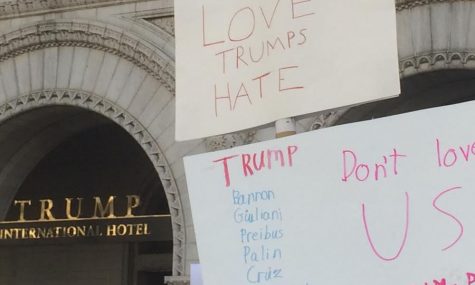 LOVE
TRUMPS
HATE
TRUMP
INTERNATIONAL HOTEL
TRUMP
Bannon
Giuliani
Preibus
Palin
Cruz
Don't love
US